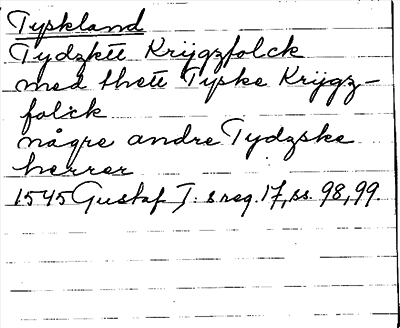 Tyskland
Tydzktt Krijgzfolck
med thett Tyske Krijgz-
folck
någre andre Tydzske
herrer
1545 Gustaf I:s reg. 17, ss. 98, 99.